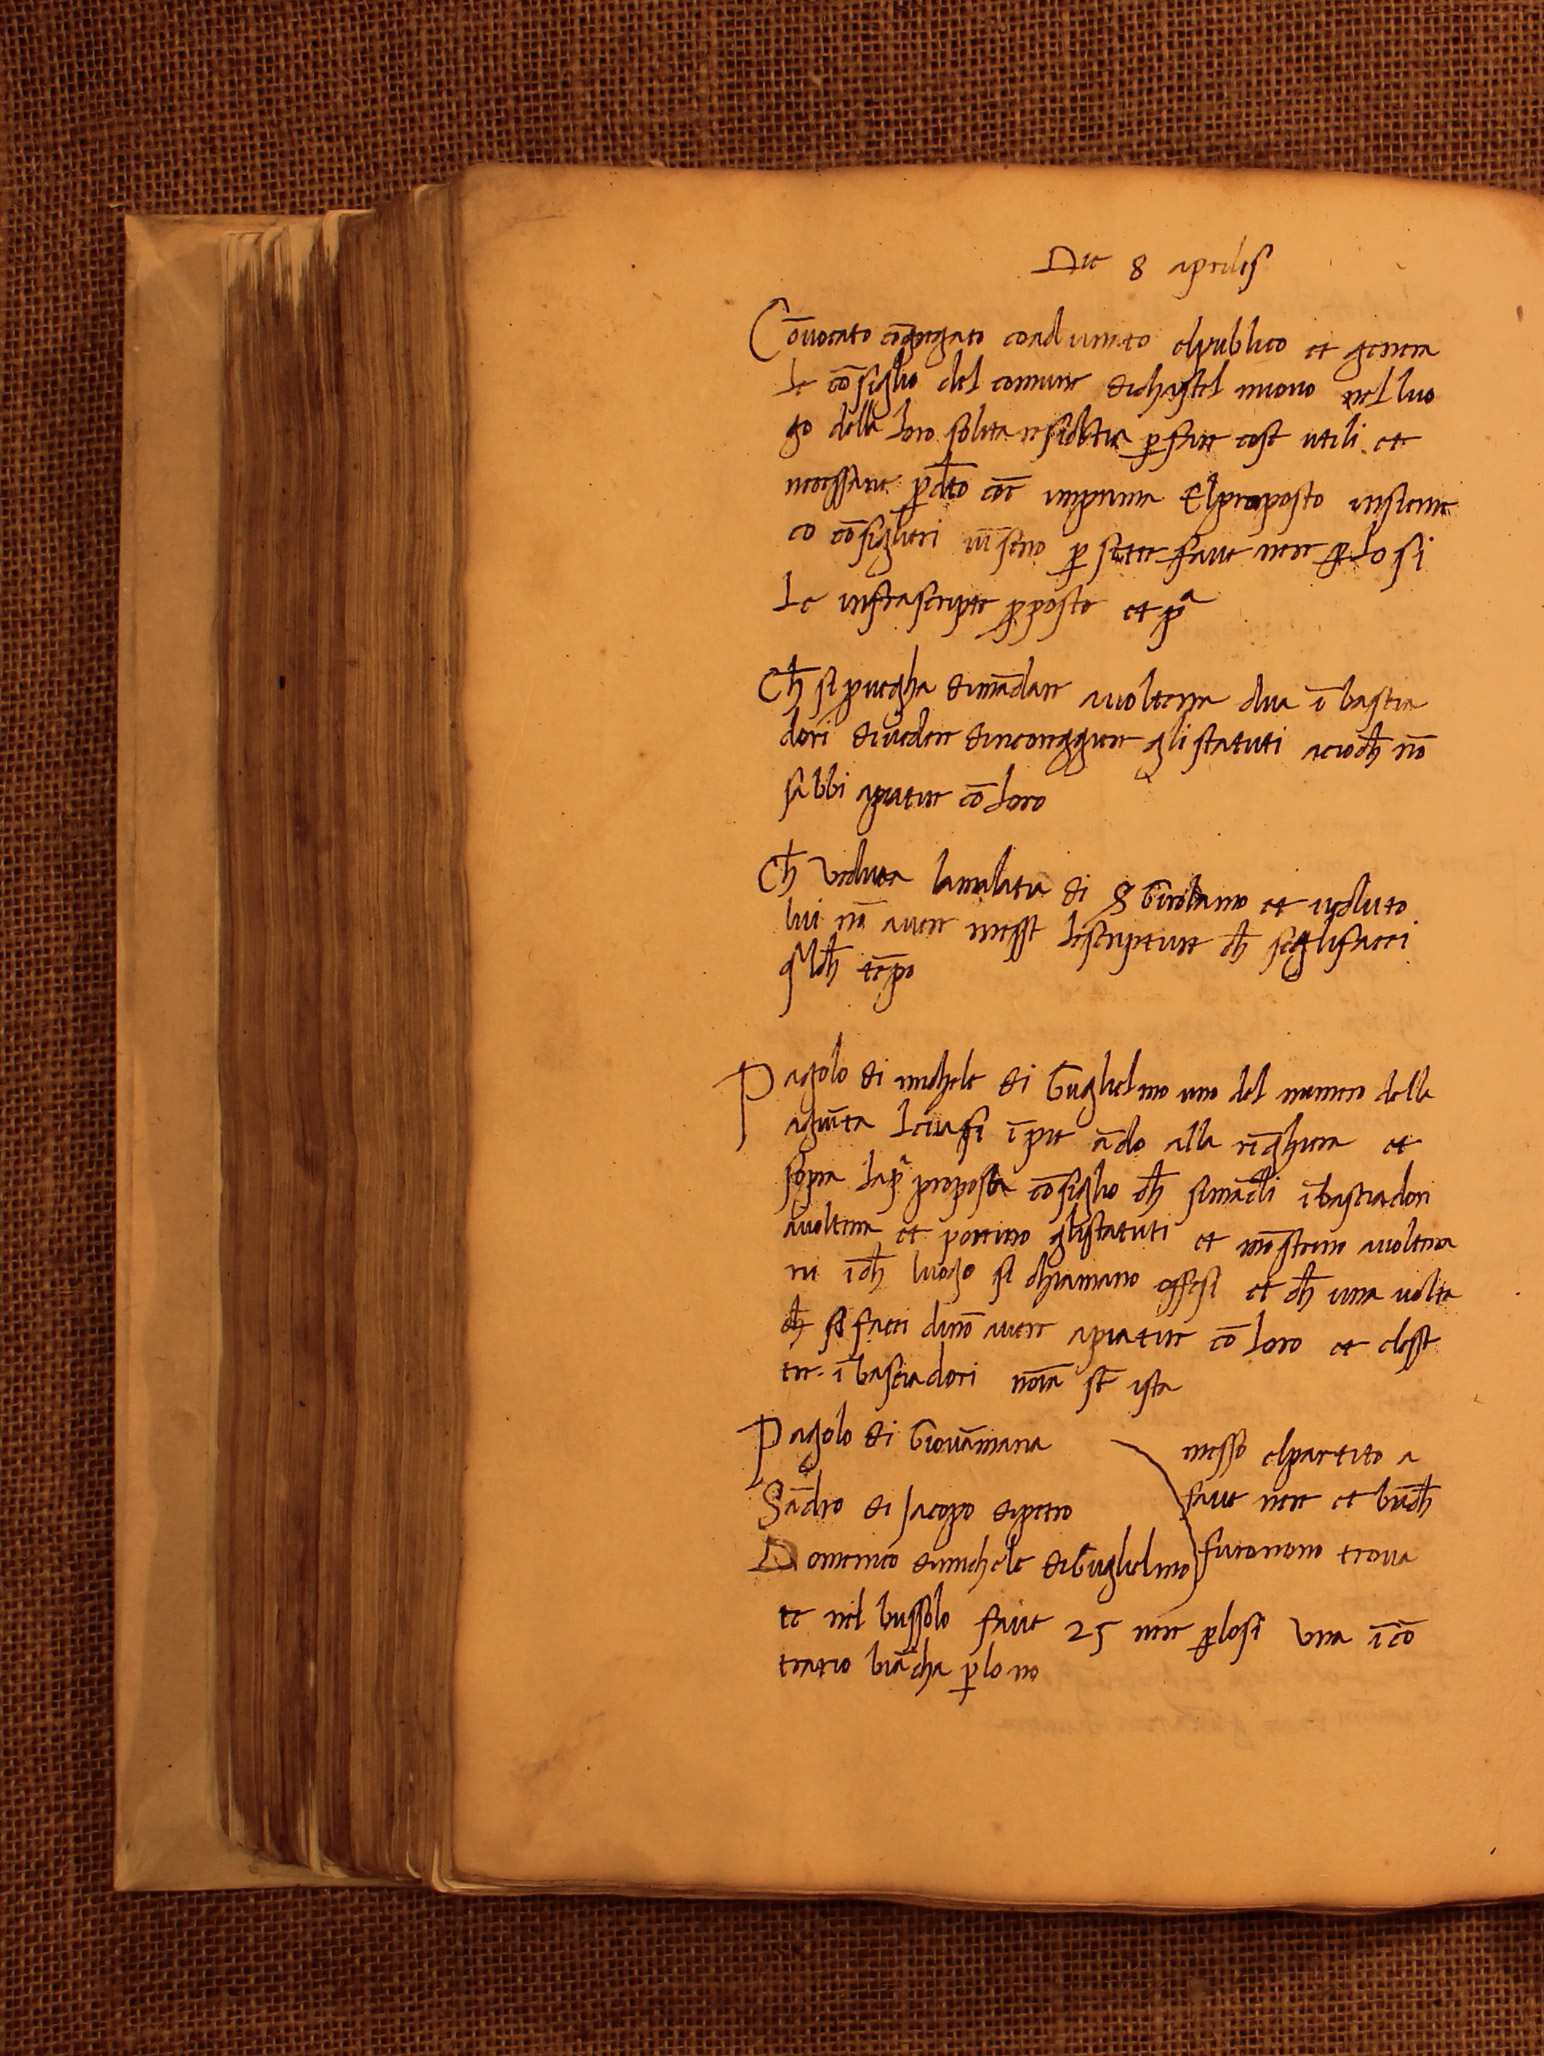 Die 8 aprilis
Cōvocato cōgregato coadunato elpublico et genera
le cōsiglio del comune dichastel nuovo nel luo
go della loro solita residētia per fare cose utili et
necessarie per dcto coē imprima Elproposto insieme
co cōsiglieri miseno per sette fave nere per lo si
le infrascripte proposte et pa
Ch̄ si provegha dimādare avolterra dua ībascia
dori divedere dincorreggiere gli statuti acioch̄ nō
sabbi apiatire cō loro
Ch̄ veduta lamalatia di S Girolamo et veduto
lui nō avere messe lescripture ch̄ segli facci
qlch̄ tēpo
Pagolo di michele di Guglielmo uno del numero della
agiūta levasi ī pie ādo alla rīghiera et
sopra lapa proposta cōsiglio ch̄ simādi ībasciadori
avolterra et portino glistatuti et mōstrino avolterra
ni īch̄ luogo si chiamano offesi et ch̄ una volta
ch̄ si facci dinō avere apiatire cō loro et elesse
tre ībasciadori noīa st̄ ista
Pagolo di Giovāmaria
Sādro di Jacopo dipiero
Domenico dimichele diGuglielmo
messo elpartito a
fave nere et biāch̄
furonono trova
te nel bussolo fave 25 nere per losi una ī cō
trario biācha per lo no